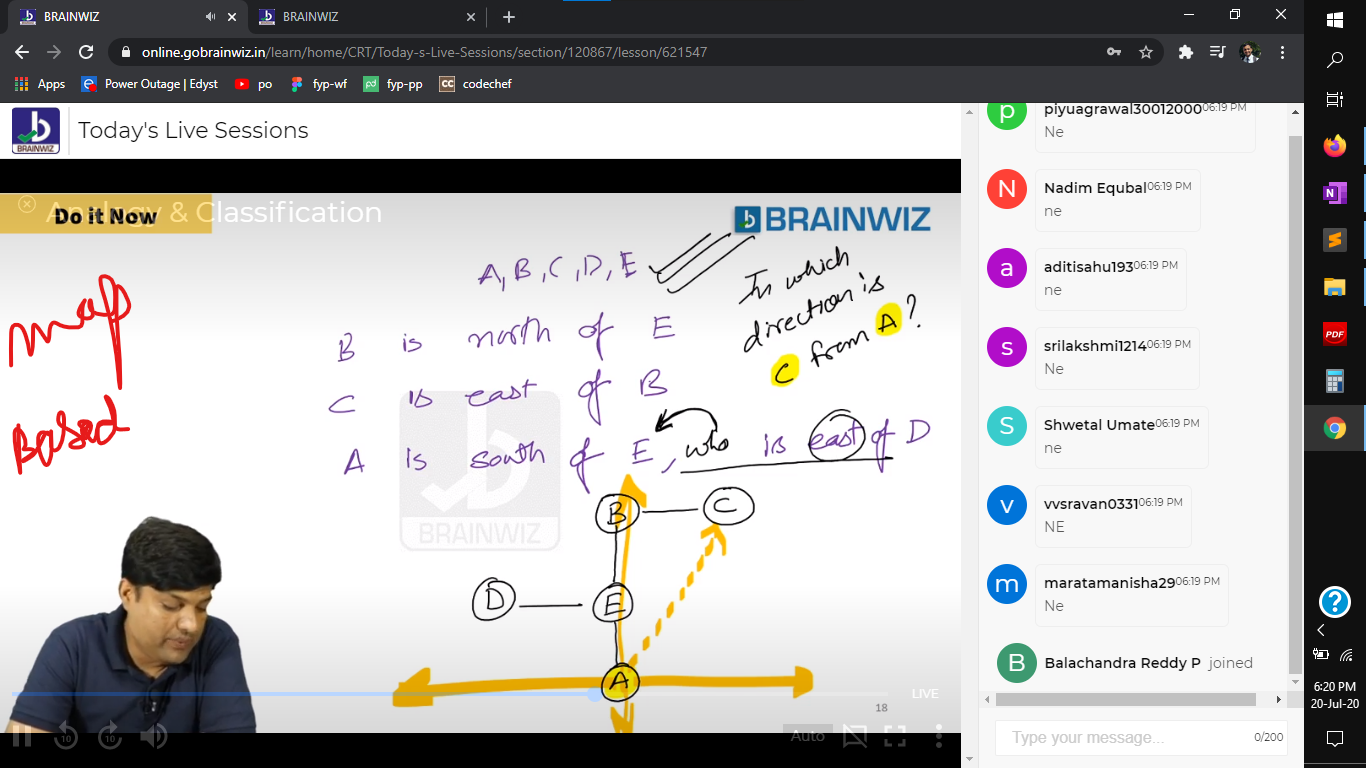 BRAINWIZ
BRAINWIZ
online.gobrainwiz.in/learn/home/CRT/Today-s-Live-Sessions/section/120867/lesson/621547
Apps
Power Outage | Edyst
po
fyp-wf
fyp-pp
codechef
BRAINWIZ
Today's Live Sessions
Do it Now
Analogy & Classification
BRAINWIZ
A, B, C, D, E
In which
direction is
C from A?
Map
Based
B is north of E
C is east of B
A is south of E, who is east of D
BRAINWIZ
B C
D E
A
LIVE
18
10
10
Auto
p
piyuagrawal30012000 06:19 PM
Ne
N
Nadim Equbal 06:19 PM
ne
a
aditisahu193 06:19 PM
ne
s
srilakshmi1214 06:19 PM
Ne
S
Shwetal Umate 06:19 PM
ne
v
vvsravan0331 06:19 PM
NE
m
maratamanisha29 06:19 PM
Ne
B
Balachandra Reddy P joined
Type your message...
0/200
PDF
6:20 PM
20-Jul-20